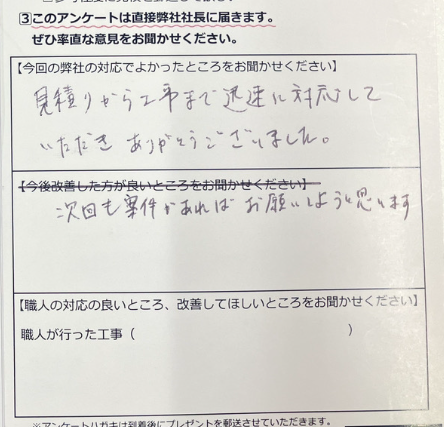 ③このアンケートは直接弊社社長に届きます。
ぜひ率直な意見をお聞かせください。
【今回の弊社の対応でよかったところをお聞かせください】
見積りから工事まで迅速に対応して
いただき ありがとうございました。
【今後改善した方が良いところをお聞かせください】
次回も案件があればお願いしようと思います
【職人の対応の良いところ、改善してほしいところをお聞かせください】
職人が行った工事（　　　）
※アンケートハガキは到着後にプレゼントを郵送させていただきます。